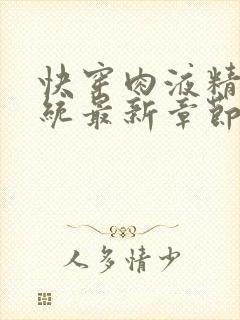 快穿肉液精
统最新章节
人多情少